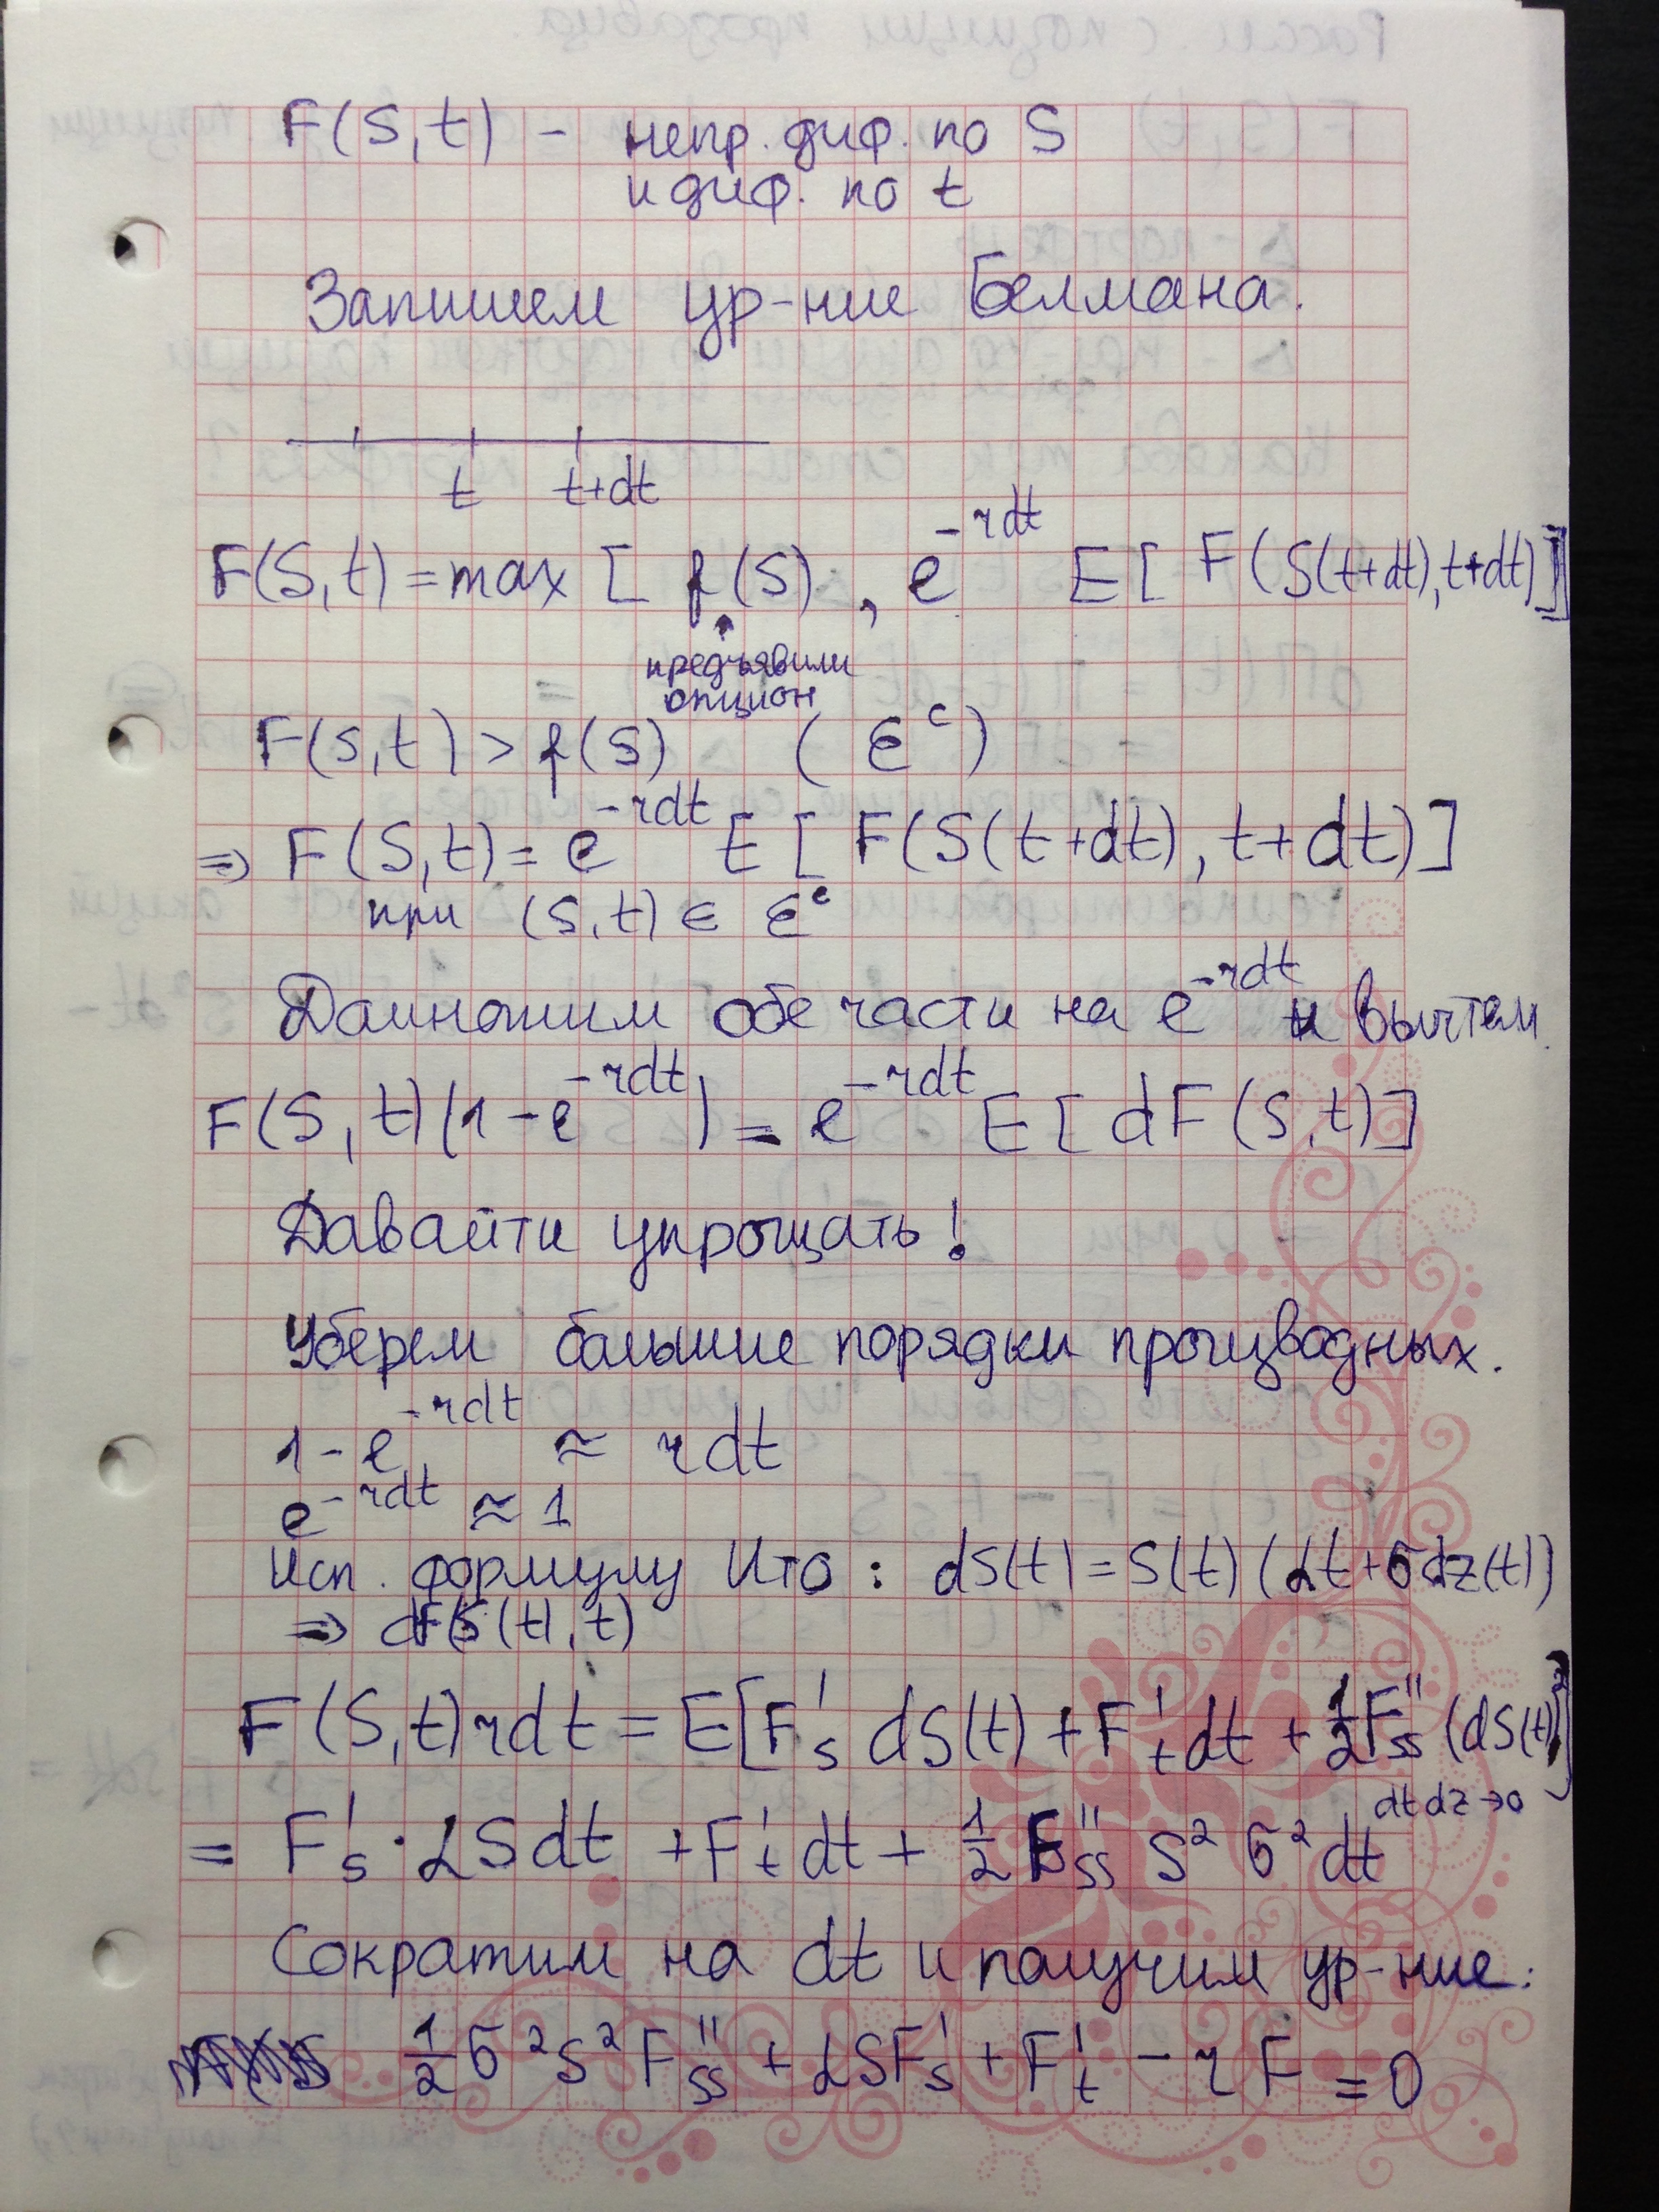 F(S,t) - непр. диф. по S
и диф. по t
Запишем ур-ние Белмана.
t t+dt
F(S,t) = max [ f(S) , e^{-rdt} E [ F(S(t+dt), t+dt) ]]
предъявили
опцион
F(s,t) > f(s) ( ℰ^c )
⇒ F(S,t) = e^{-rdt} E [ F(S(t+dt), t+dt) ]
при (s,t) ∈ ℰ^c
Дамножим обе части на e^{-rdt} и вычтем.
F(S,t)(1-e^{-rdt}) = e^{-rdt} E [ dF(S,t) ]
Давайти упрощать!
Уберем большие порядки производных.
1-e^{-rdt} ≈ rdt
e^{-rdt} ≈ 1
Исп. формулу Ито: dS(t) = S(t)(αt+σdz(t))
⇒ dF(S(t),t)
F(S,t)rdt = E[F'_s dS(t) + F'_t dt + 1/2 F''_ss (dS(t))^2]
dtdz→0
= F'_s · αSdt + F'_t dt + 1/2 F''_ss S^2 σ^2 dt
Сократим на dt и получим ур-ние:
1/2 σ^2 S^2 F''_ss + αSF'_s + F'_t - rF = 0